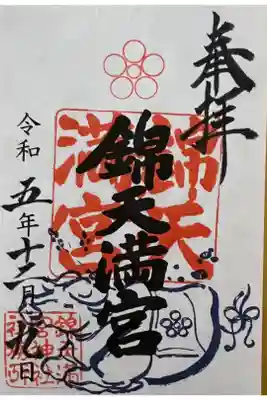 奉拝
錦天満宮
錦天
満宮
令和五年十二月九日